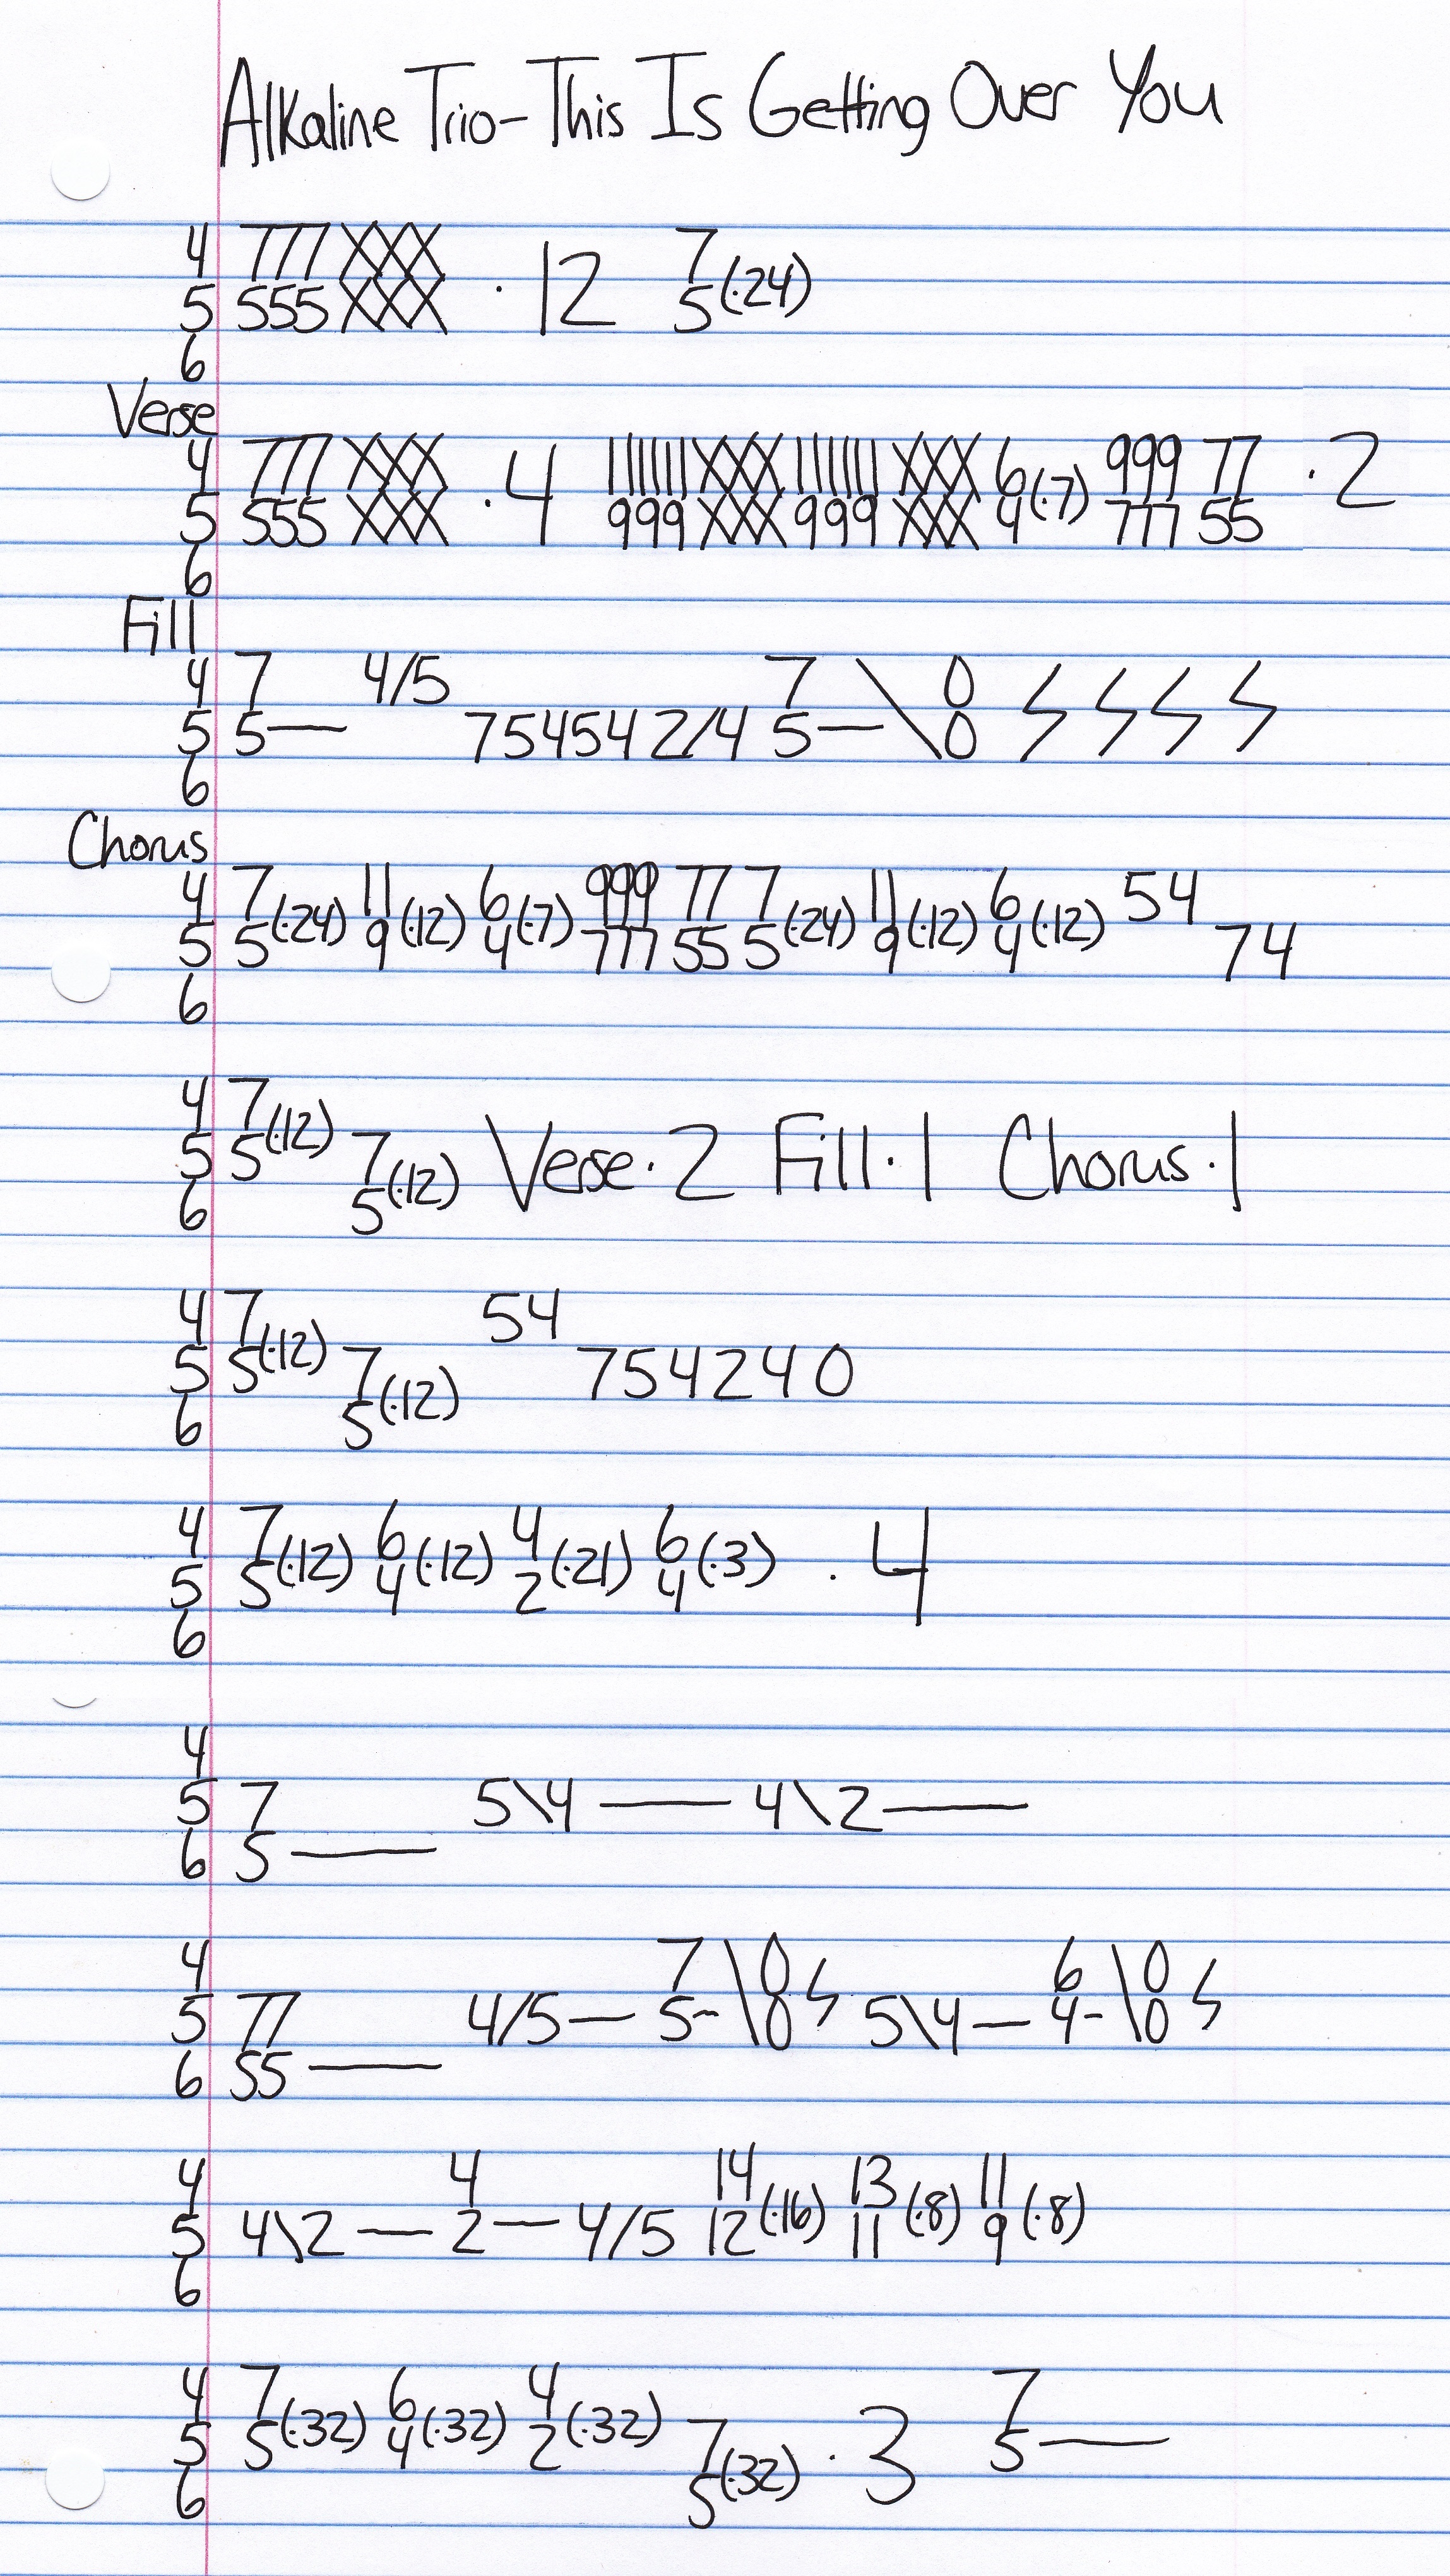 Alkaline Trio-This Is Getting Over You
4 777 XXX · 12 7
5 555 XXX 5(·24)
6
Verse
4 777 XXX · 4 11 11 11 XXX 11 11 11 XXX 6 999 77 · 2
5 555 XXX 999 XXX 999 XXX 4(·7) 777 55
6
Fill
4 7 4/5 7 \ 0
5 5— 754542/4 5— \ 0
6
Chorus
4 7 11 6 999 77 7 11 6 54
5 5(·24) 9(·12) 4(·7) 777 55 5(·24) 9(·12) 4(·12) 74
6
4 7
5 5(·12) 7 Verse·2 Fill·1 Chorus·1
6 5(·12)
4 7 54
5 5(·12) 7 754240
6 5(·12)
4 7 6 4 6 · 4
5 5(·12) 4(·12) 2(·21) 4(·3)
6
4
5 7 5\4 — 4\2 —
6 5 —
4 7 \ 0 6 \ 0
5 77 4/5 — 5- \ 0 5\4 — 4- \ 0
6 55 —
4 4 14 13 11
5 4\2 — 2 — 4/5 12(·16) 11(·8) 9(·8)
6
4 7 6 4 7
5 5(·32) 4(·32) 2(·32) 7 · 3 5 —
6 5(·32)